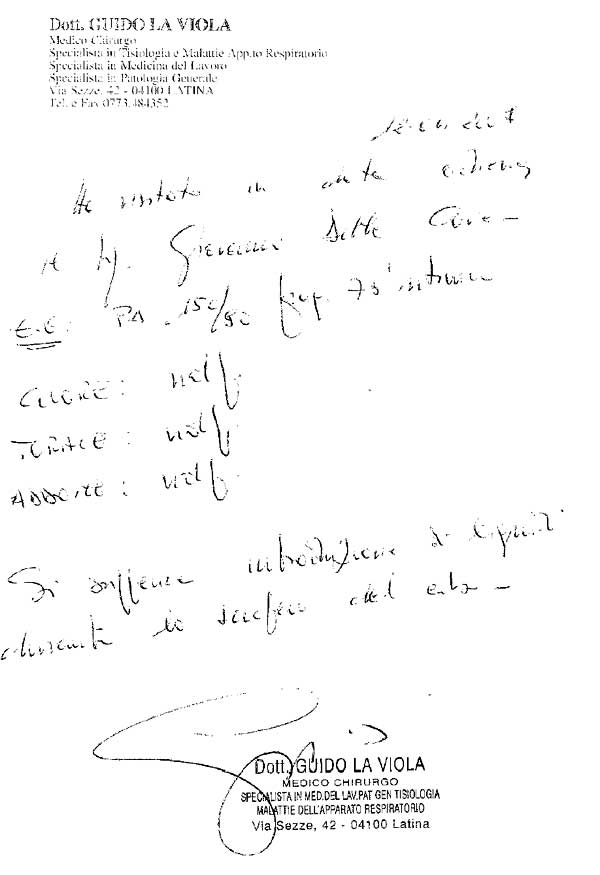 Dott. GUIDO LA VIOLA
Medico Chirurgo
Specialista in Tisiologia e Malattie App.to Respiratorio
Specialista in Medicina del Lavoro
Specialista in Patologia Generale
Via Sezze, 42 - 04100 LATINA
Tel. e Fax 0773.484352
Ho visitato in data odierna
il Sig. Giovanni Delle Cave -
E.O: PA 150/80 fr 78'
CUORE: ndf
TORACE: ndf
ADDOME: ndf
Si introduzione di liquidi
durante lo del -
Dott. GUIDO LA VIOLA
MEDICO CHIRURGO
SPECIALISTA IN MED.DEL LAV.PAT GEN TISIOLOGIA
MALATTIE DELL'APPARATO RESPIRATORIO
Via Sezze, 42 - 04100 Latina